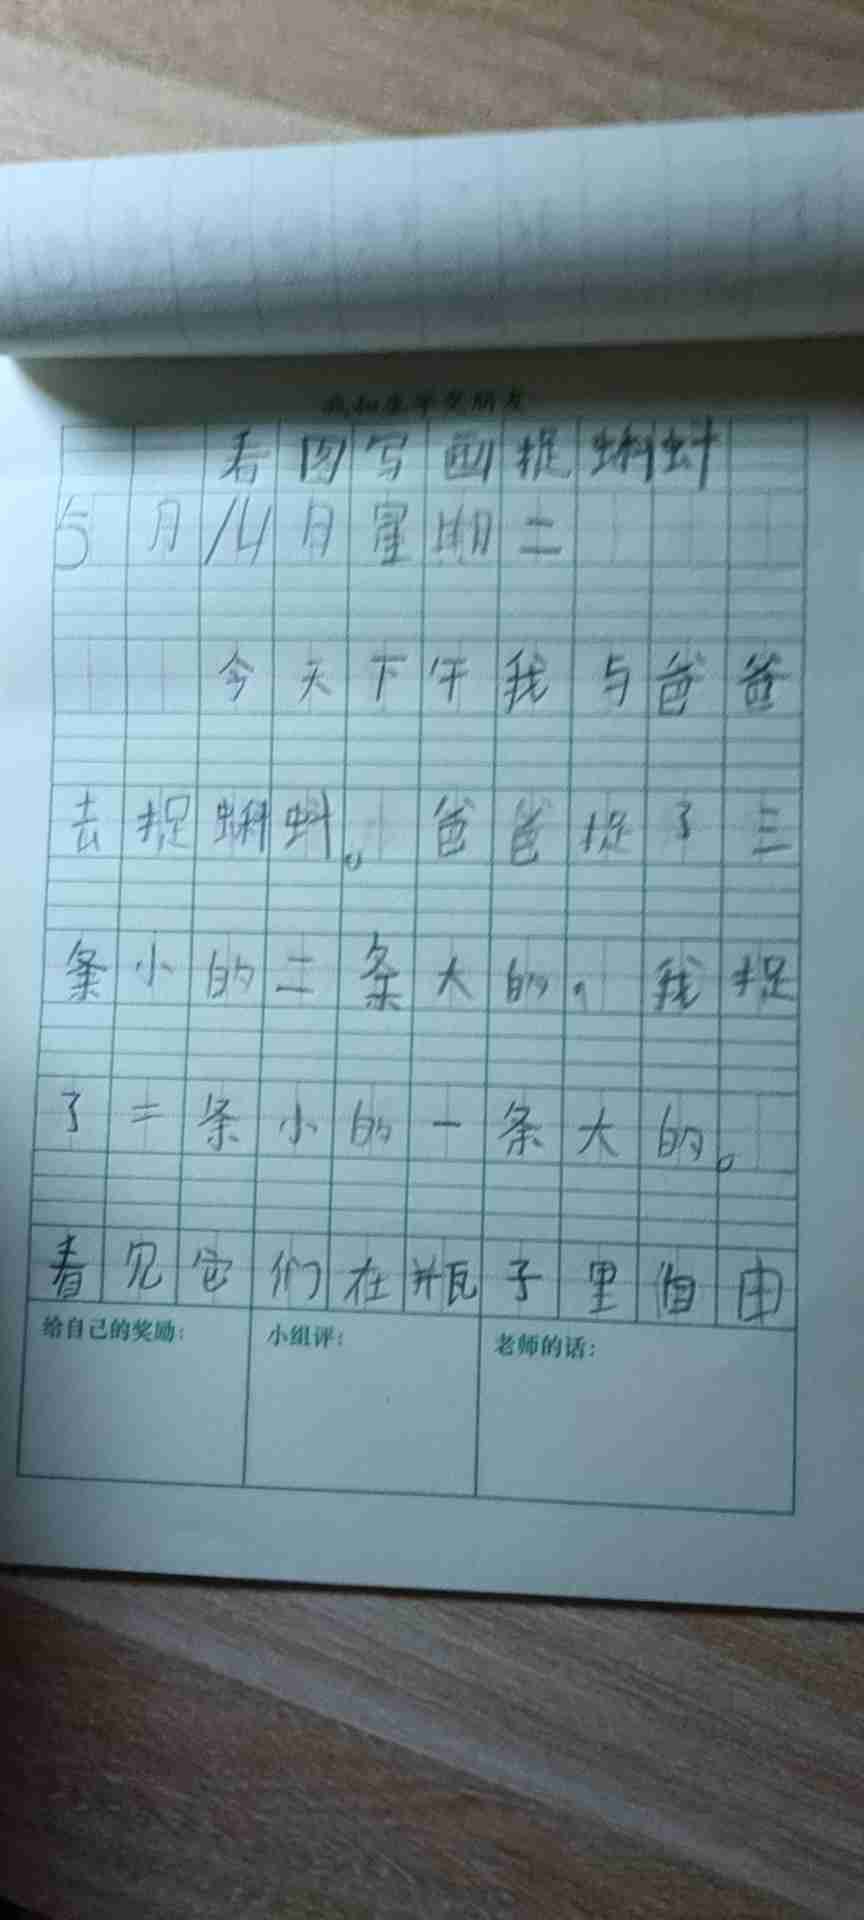 看图写画捉蝌蚪
5月14日星期二
今天下午我与爸爸
去捉蝌蚪。爸爸捉了三
条小的二条大的,我捉
了二条小的一条大的。
看见它们在瓶子里自由
给自己的奖励:
小组评:
老师的话: